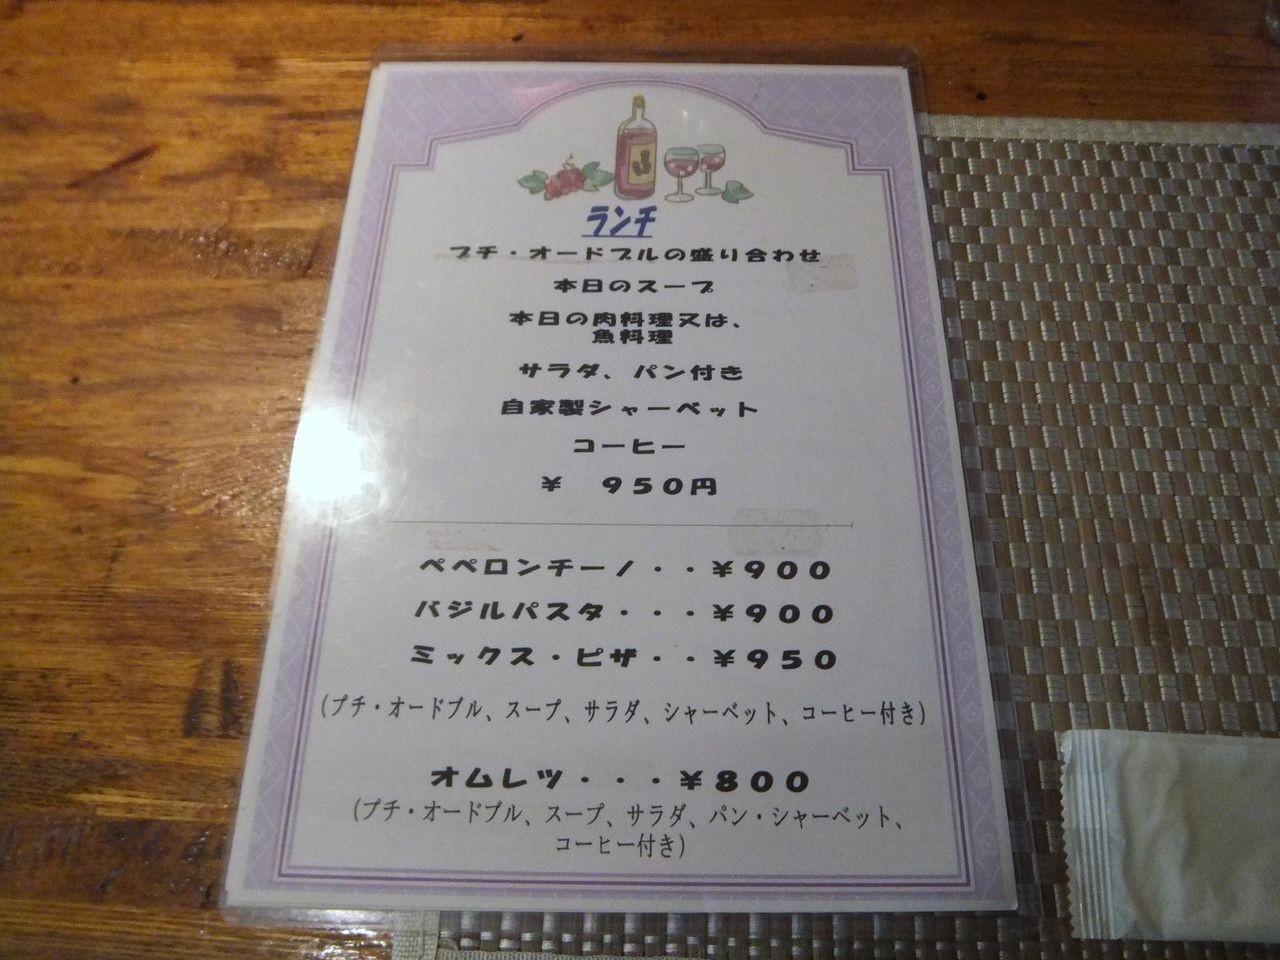 ランチ
プチ・オードブルの盛り合わせ
本日のスープ
本日の肉料理又は、
魚料理
サラダ、パン付き
自家製シャーベット
コーヒー
¥ 950円
ペペロンチーノ・・¥900
バジルパスタ・・・¥900
ミックス・ピザ・・¥950
(プチ・オードブル、スープ、サラダ、シャーベット、コーヒー付き)
オムレツ・・・¥800
(プチ・オードブル、スープ、サラダ、パン・シャーベット、
コーヒー付き)